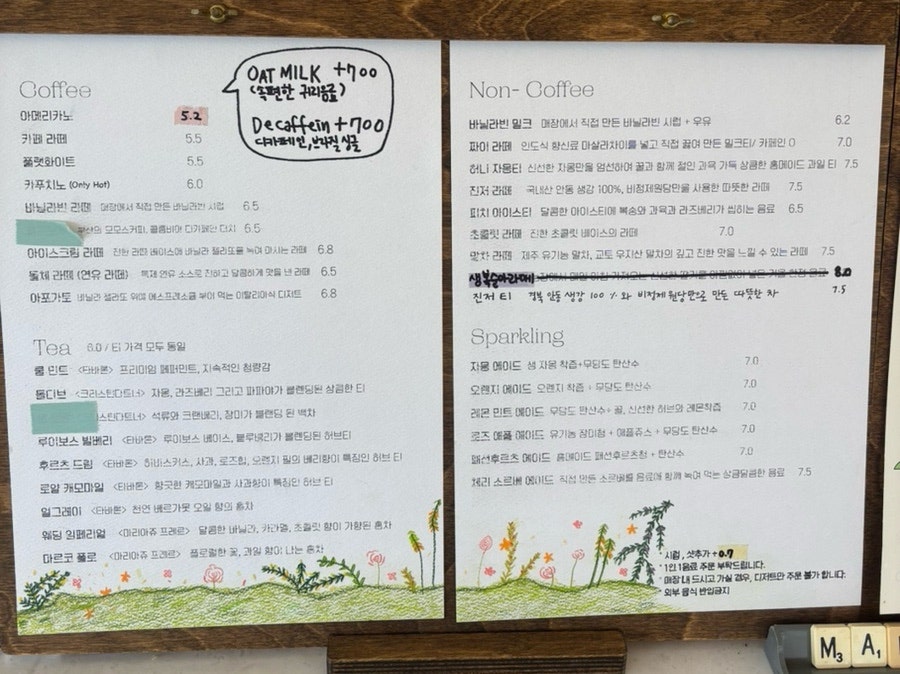 Coffee
OAT MILK +700
(속편한 귀리음료)
Decaffein +700
디카페인, 브라질 싱글
아메리카노 5.2
카페 라떼 5.5
플랫화이트 5.5
카푸치노 (Only Hot) 6.0
바닐라빈 라떼 매장에서 직접 만든 바닐라빈 시럽 6.5
모모스커피, 콜롬비아 디카페인 더치 6.5
아이스크림 라떼 진한 라떼 베이스에 바닐라 젤라또를 녹여 마시는 라떼 6.8
돌체 라떼 (연유 라떼) 특제 연유 소스로 진하고 달콤하게 맛을 낸 라떼 6.5
아포가토 바닐라 젤라또 위에 에스프레소를 부어 먹는 이탈리아식 디저트 6.8
Tea 6.0 / 티 가격 모두 동일
쿨 민트 <타바론> 프리미엄 페퍼민트, 지속적인 청량감
돌디브 <크리스틴다트너> 자몽, 라즈베리 그리고 파파야가 블렌딩된 상큼한 티
스틴다트너> 석류와 크랜베리, 장미가 블렌딩 된 백차
루이보스 빌베리 <타바론> 루이보스 베이스, 블루베리가 블렌딩된 허브티
후르츠 드림 <타바론> 히비스커스, 사과, 로즈힙, 오렌지 필의 베리향이 특징인 허브 티
로얄 캐모마일 <타바론> 향긋한 캐모마일과 사과향이 특징인 허브 티
얼그레이 <타바론> 천연 베르가못 오일 향의 홍차
웨딩 임페리얼 <마리아쥬 프레르> 달콤한 바닐라, 카라멜, 초콜릿 향이 가향된 홍차
마르코 폴로 <마리아쥬 프레르> 플로럴한 꽃, 과일 향이 나는 홍차
Non- Coffee
바닐라빈 밀크 매장에서 직접 만든 바닐라빈 시럽 + 우유 6.2
짜이 라떼 인도식 향신료 마살라차이를 넣고 직접 끓여 만든 밀크티/ 카페인 O 7.0
허니 자몽티 신선한 자몽만을 엄선하여 꿀과 함께 절인 과육 가득 상큼한 홈메이드 과일 티 7.5
진저 라떼 국내산 안동 생강 100%, 비정제원당만을 사용한 따뜻한 라떼 7.5
피치 아이스티 달콤한 아이스티에 복숭아 과육과 라즈베리가 씹히는 음료 6.5
초콜릿 라떼 진한 초콜릿 베이스의 라떼 7.0
말차 라떼 제주 유기농 말차, 교토 우지산 말차의 깊고 진한 맛을 느낄 수 있는 라떼 7.5
생복숭아라떼 8.0
진저 티 경북 안동 생강 100%와 비정제 원당만으로 만든 따뜻한 차 7.5
Sparkling
자몽 에이드 생 자몽 착즙+무당도 탄산수 7.0
오렌지 에이드 오렌지 착즙 + 무당도 탄산수 7.0
레몬 민트 에이드 무당도 탄산수+ 꿀, 신선한 허브와 레몬착즙 7.0
로즈 애플 에이드 유기농 장미청 + 애플쥬스 + 무당도 탄산수 7.0
패션후르츠 에이드 홈메이드 패션후르츠청 + 탄산수 7.0
체리 소르베 에이드 직접 만든 소르베를 음료에 함께 녹여 먹는 상큼달콤한 음료 7.5
* 시럽, 샷추가 + 0.7
* 1인 1음료 주문 부탁드립니다.
* 매장 내 드시고 가실 경우, 디저트만 주문 불가 합니다.
* 외부 음식 반입금지
M3 A1